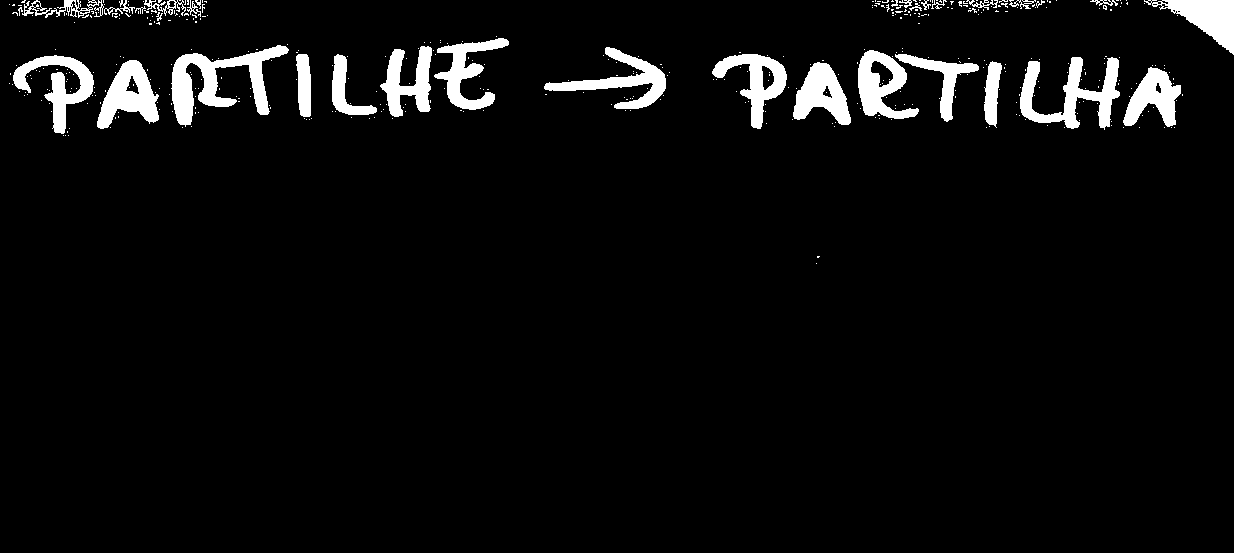 PARTILHE → PARTILHA